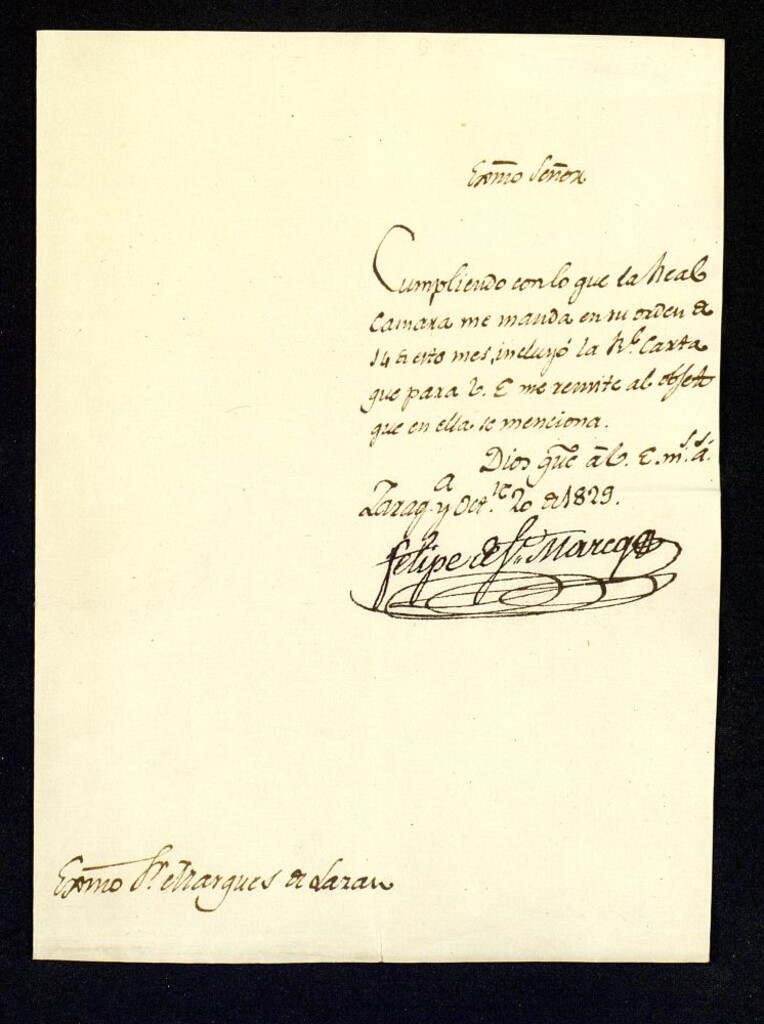 Exmo Señor
Cumpliendo con lo que la Real
Camara me manda en su orden de
14 de esto mes, incluyó la Rl. Carta
que para V. E me remite al objeto
que en ella se menciona.
Dios gue. á V. E. ms. as.
Zarag.a y Oct.re 20 de 1829.
Felipe de Sn. Marcq
Exmo Sr. Marques de Lazan